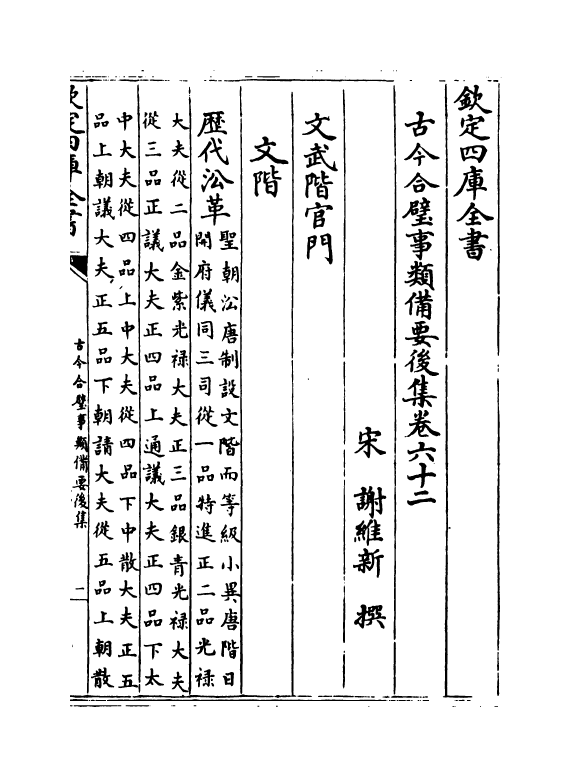 欽定四庫全書
古今合璧事類備要後集卷六十二
宋 謝維新 撰
文武階官門
文階
歷代㳂革聖朝㳂唐制設文階而等級小異唐階日
開府儀同三司從一品特進正二品光祿
大夫從二品金紫光祿大夫正三品銀青光祿大夫
從三品正議大夫正四品上通議大夫正四品下太
中大夫從四品上中大夫從四品下中散大夫正五
品上朝議大夫正五品下朝請大夫從五品上朝散
欽定四庫全書
古今合璧事類備要後集
一